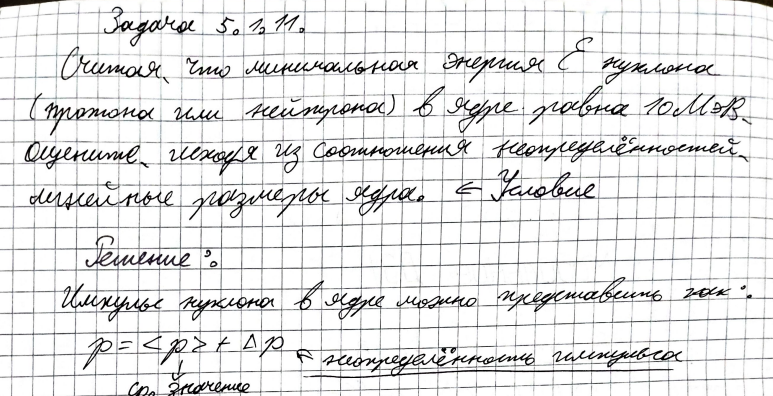 Задача 5.1.11.
Считая, что минимальная энергия E нуклона
(протона или нейтрона) в ядре равна 10 МэВ,
оцените, исходя из соотношения неопределённостей,
линейные размеры ядра. ← Условие
Решение:
Импульс нуклона в ядре можно представить как:
p = <p> + Δp ← неопределённость импульса
ср. значение